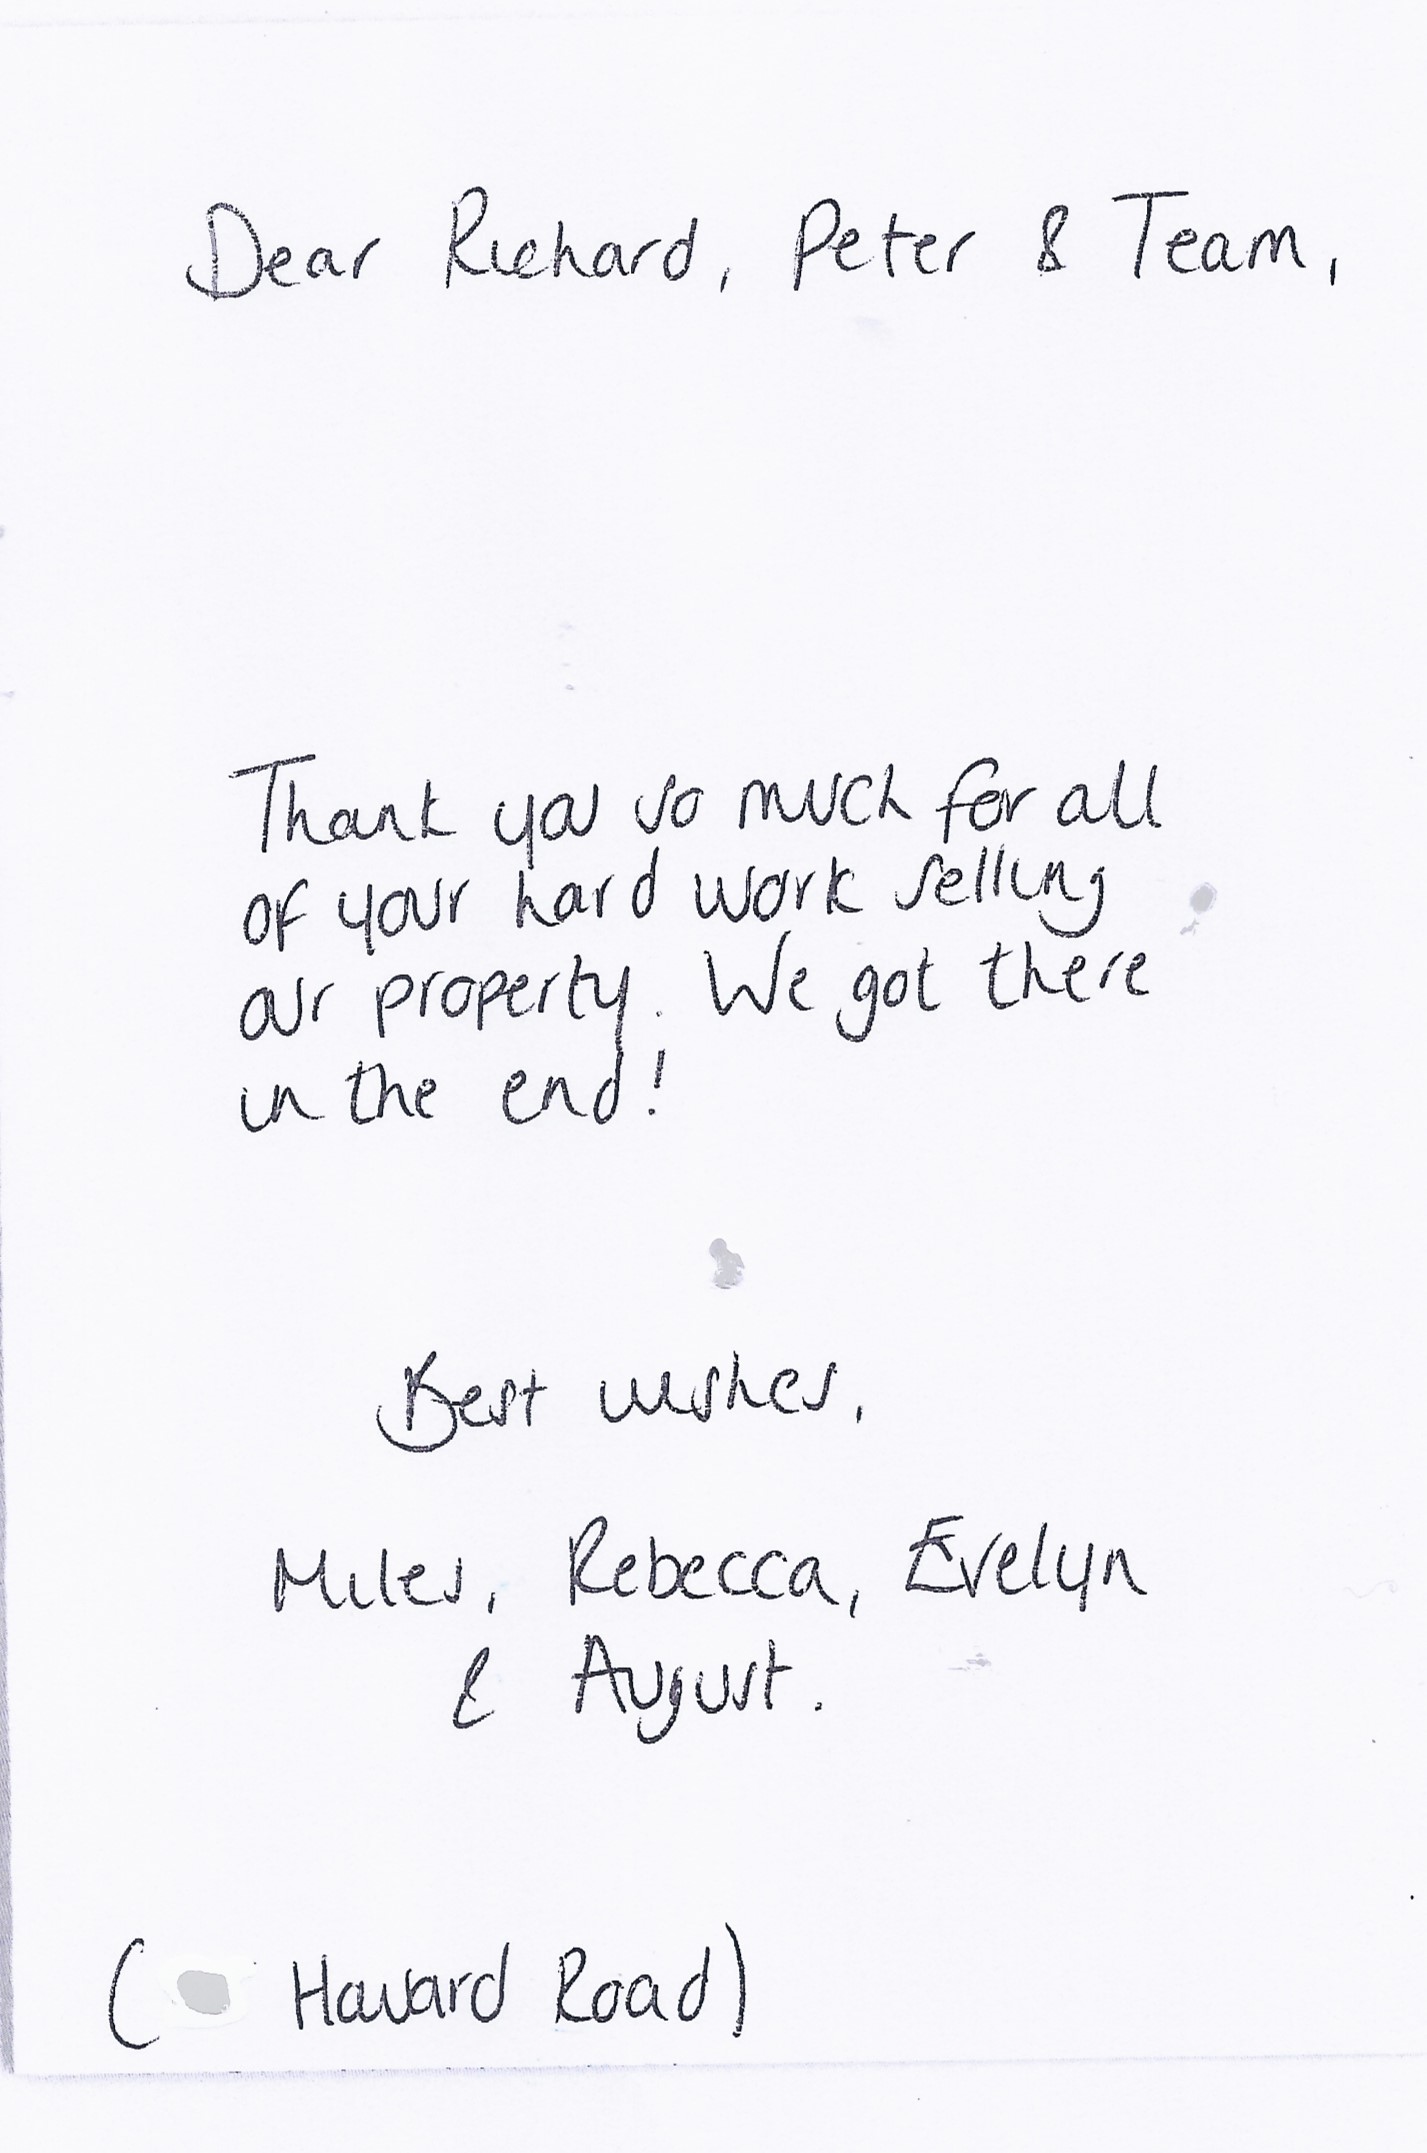 Dear Richard, Peter & Team,
Thank you so much for all
of your hard work selling
our property. We got there
in the end!
Best wishes,
Miles, Rebecca, Evelyn
& August.
( Havard Road)